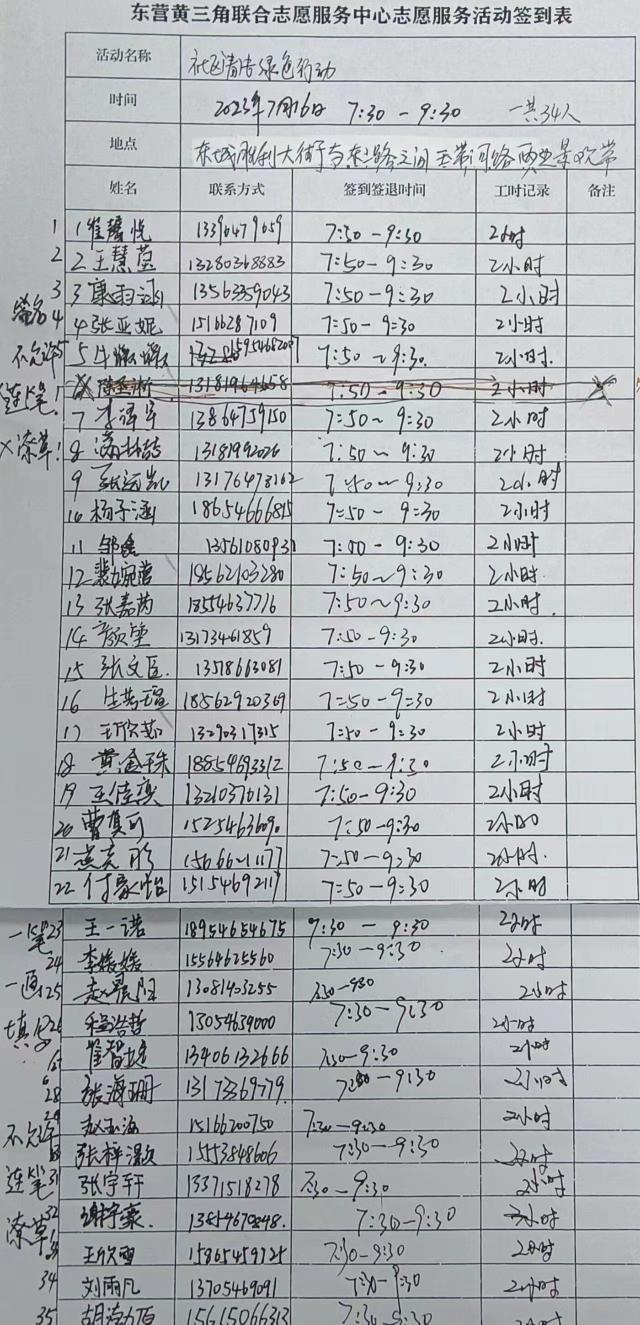 东营黄三角联合志愿服务中心志愿服务活动签到表
活动名称 社区清洁绿色行动
时间 2023年7月16日 7:30-9:30 一共34人
地点 东城胜利大街与东二路之间玉带河路两边景观带
姓名 联系方式 签到签退时间 工时记录 备注
1 1 崔馨悦 7:50-9:30 2小时
2 2 王慧莹 13280368883 7:50-9:30 2小时
3 3 康雨涵 13563359043 7:50-9:30 2小时
签名 4 4 张亚妮 15166287109 7:50-9:30 2小时
不允许 5 5 7:50~9:30 2小时
连笔! 13181964658 7:50-9:30 2小时
7 李泽宇 13864759150 7:50~9:30 2小时
X潦草! 8 13181992026 7:50~9:30 2小时
9 张运凯 13176478162 7:50~9:30 2小时
10 杨子涵 18654666815 7:50-9:30 2小时
11 邹鑫 13561080931 7:50-9:30 2小时
12 裴婉莹 7:50~9:30 2小时
13 张嘉芮 18554637776 7:50~9:30 2小时
14 13173461859 7:50-9:30 2小时
15 张文臣 13518663081 7:50-9:30 2小时
16 18562920369 7:50-9:30 2小时
17 王欣茹 13290317315 7:50-9:30 2小时
18 黄金珠 18854693312 7:50-9:30 2小时
19 王佳奕 13210370131 7:50-9:30 2小时
20 曹复可 15254636090 7:50-9:30 2小时
21 7:50-9:30 2小时
22 付豪怡 15154692117 7:50-9:30 2小时
一笔 23 王一诺 18954654675 7:30-9:30 2小时
24 李媛媛 15564625560 7:30-9:30 2小时
一画 25 赵晨阳 13081403255 7:30-930 2小时
填写 26 程浩哲 13054634000 7:30-9:30 2小时
崔智超 13406132666 7:30-9:30 2小时
28 张海珊 13173369779 7:30-9:30 2小时
赵玉海 15166200750 7:30-9:30 2小时
不允许 张梓灏 15553848606 7:30-9:30 2小时
连笔 31 张宇轩 13371518278 7:30-9:30 2小时
潦草 32 谢宇豪 13854670848 7:30-9:30 2小时
王欣雪 15865459725 7:30-9:30 2小时
34 刘雨凡 13705469091 7:30-9:30 2小时
35 15615066313 7:30-9:30 2小时